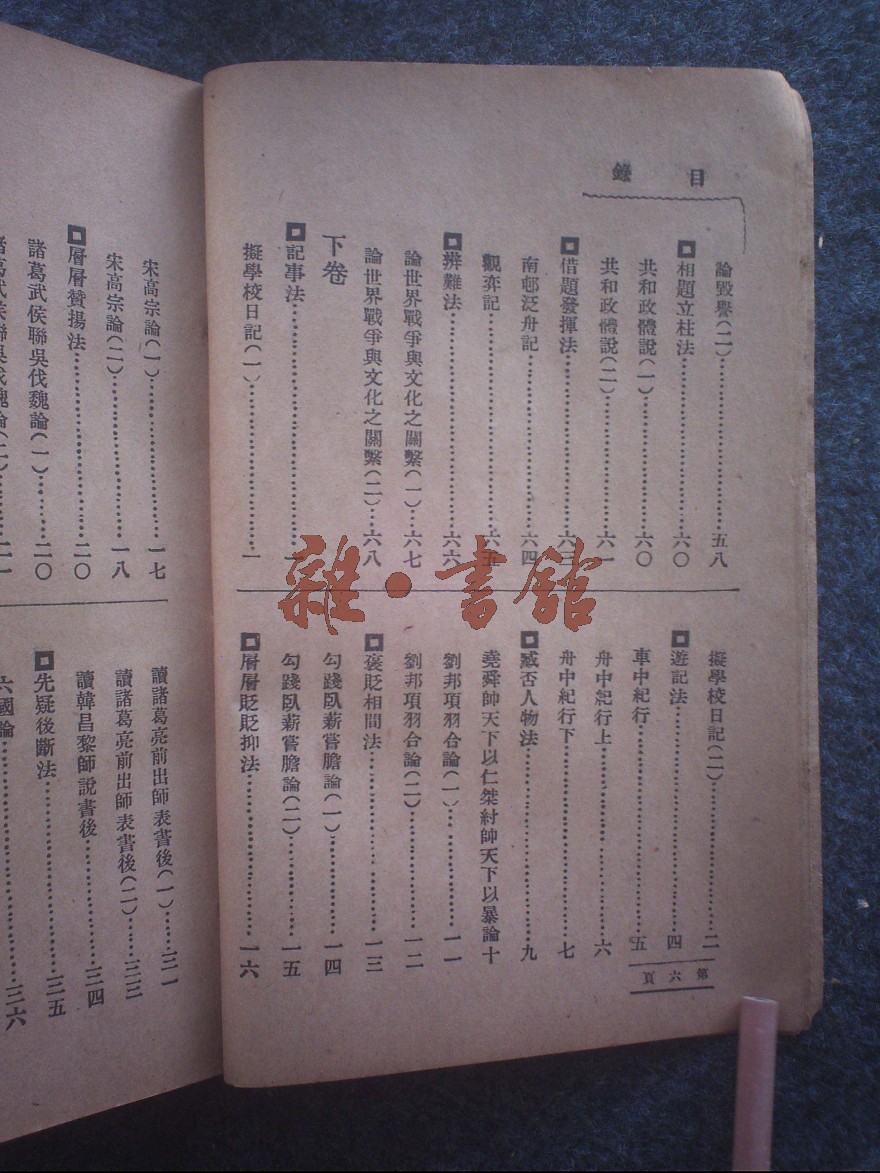 目錄
論毀譽(二)……五八
相題立柱法……六〇
共和政體說(一)……六〇
共和政體說(二)……六一
借題發揮法……六三
南邨泛舟記……六四
觀弈記……六五
辨難法……六六
論世界戰爭與文化之關繫(一)……六七
論世界戰爭與文化之關繫(二)……六八
下卷
記事法……一
擬學校日記(一)……一
擬學校日記(二)……二
遊記法……四
車中紀行……五
舟中紀行上……六
舟中紀行下……七
臧否人物法……九
堯舜帥天下以仁桀紂帥天下以暴論十
劉邦項羽合論(一)……一一
劉邦項羽合論(二)……一二
褒貶相間法……一三
勾踐臥薪嘗膽論(一)……一四
勾踐臥薪嘗膽論(二)……一五
層層貶貶抑法……一六
第六頁
宋高宗論(一)……一七
宋高宗論(二)……一八
層層贊揚法……二〇
諸葛武侯聯吳伐魏論(一)……二〇
諸葛武侯聯吳伐魏論(二)……二一
讀諸葛亮前出師表書後(一)……三一
讀諸葛亮前出師表書後(二)……三三
讀韓昌黎師說書後……三四
先疑後斷法……三五
六國論……三六
雜·書館